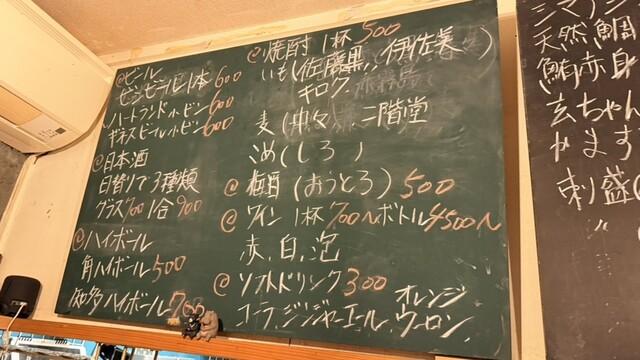 @ビール
ビンビール1本 600
ハートランド小ビン 600
ギネスビール小ビン 600
@日本酒
日替りで3種類
グラス700 1合900
@ハイボール
角ハイボール500
知多ハイボール700
@焼酎 1杯 500
いも(佐藤黒、伊佐美)
キロク
麦(中々、二階堂
こめ(しろ)
@梅酒(おうとろ)500
@ワイン 1杯700〜ボトル4500〜
赤、白、泡
@ソフトドリンク300
コーラ、ジンジャーエール、オレンジ
ウーロン
天然鯛
(鮪)赤身
玄ちゃん
かます
刺盛(